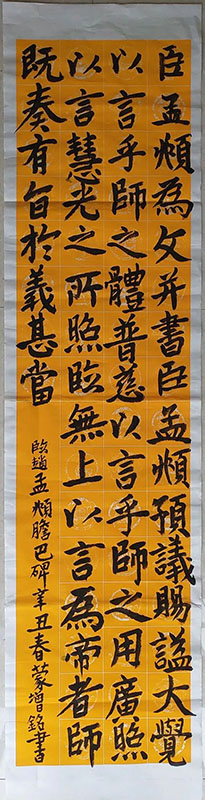 臣孟頫為文并書臣孟頫預議賜謚大覺
以言乎師之體普慈以言乎師之用廣照
以言慧光之所照臨無上以言為帝者師
既奏有旨於義甚當
臨趙孟頫膽巴碑辛丑春蒙增銘書